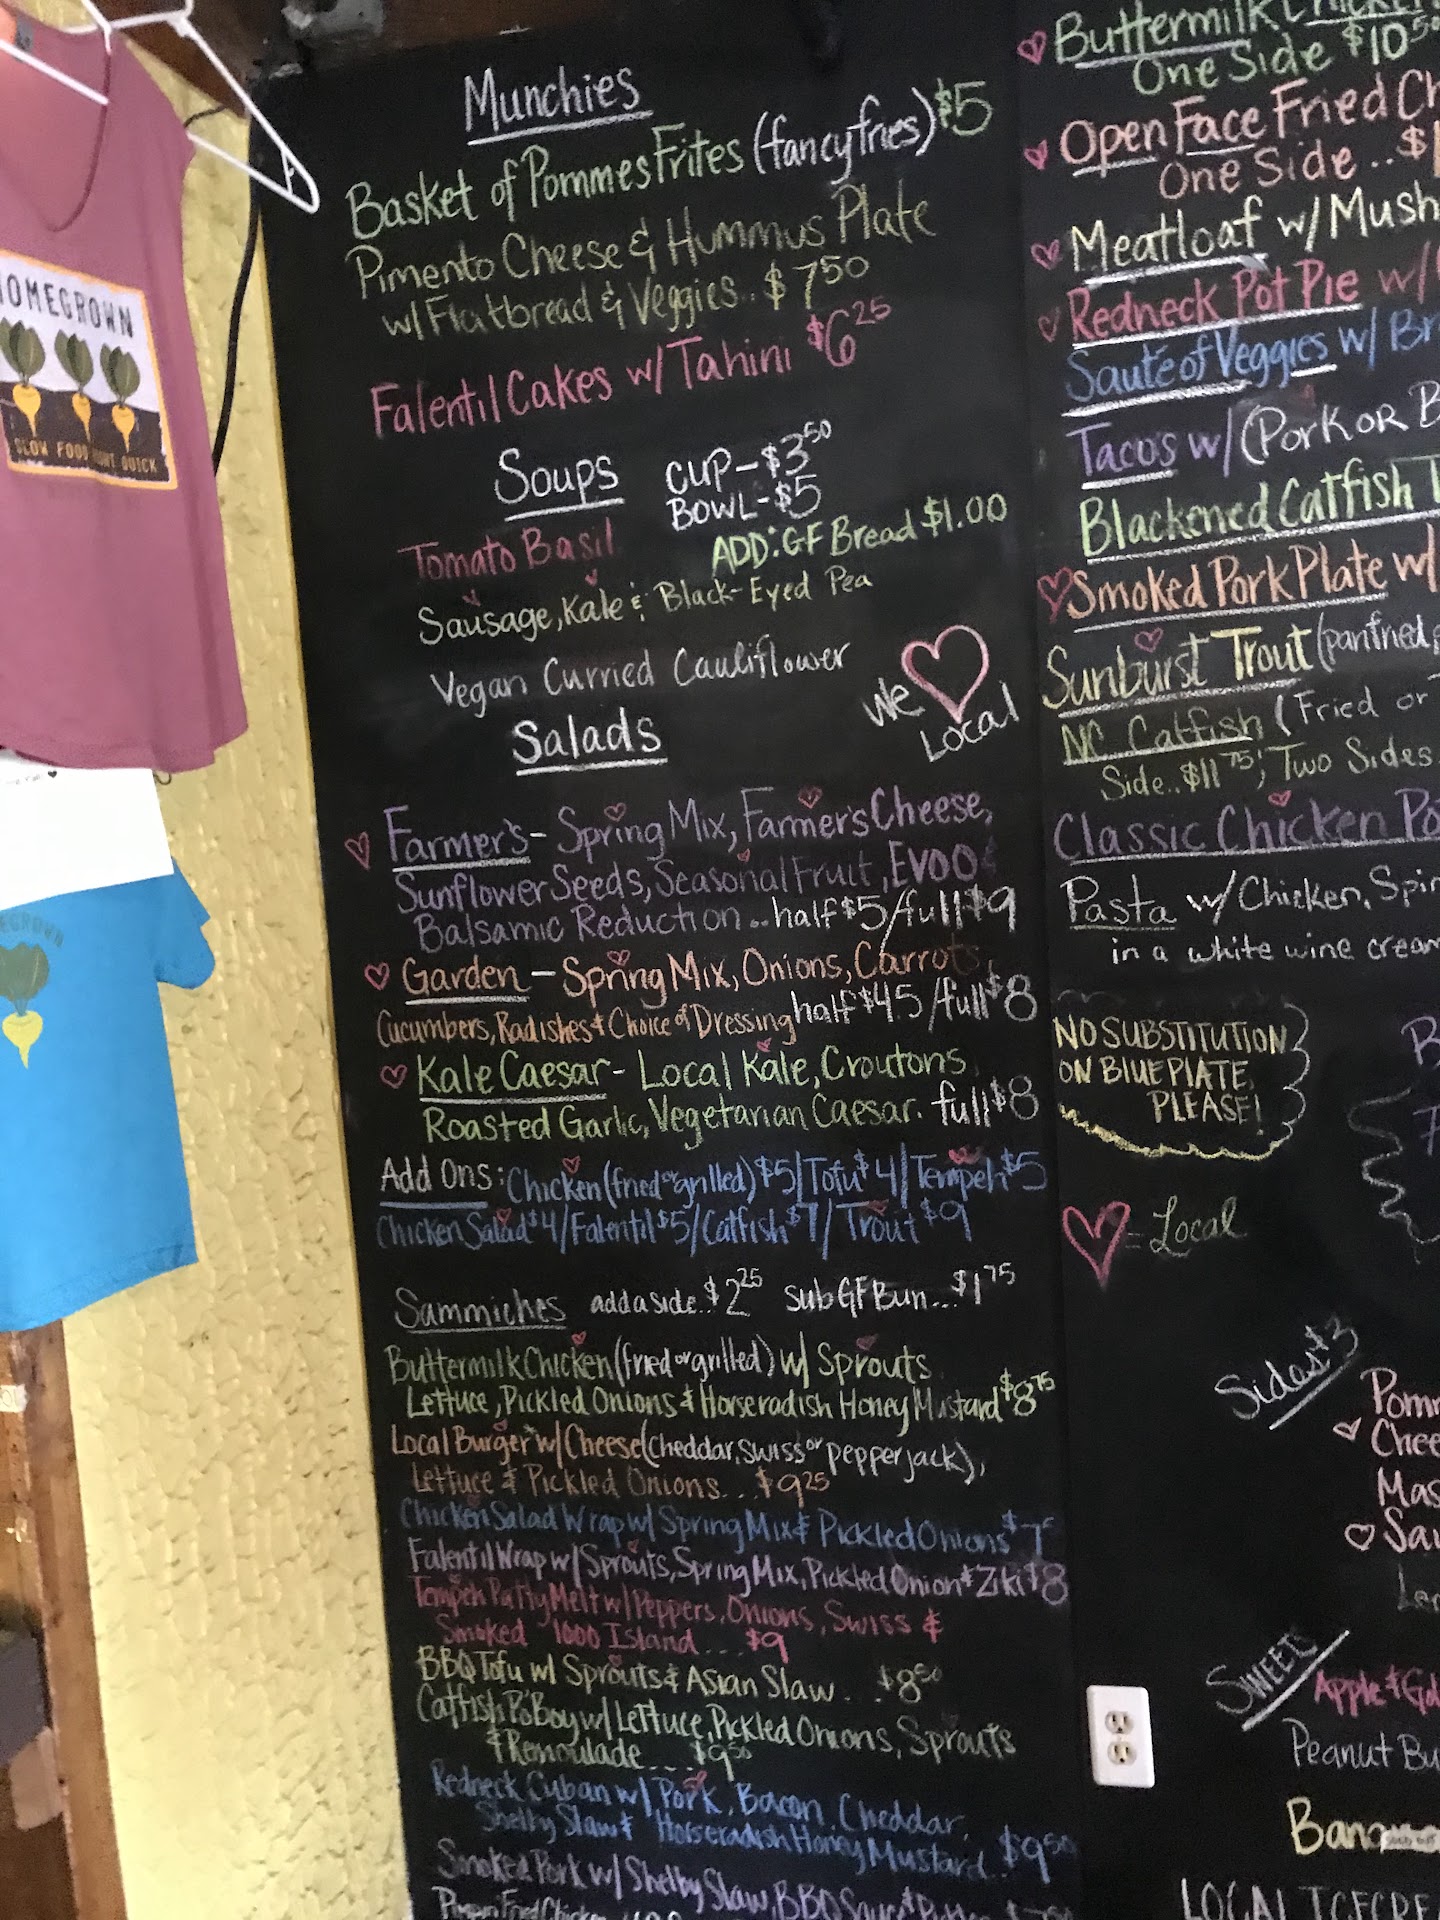 HOMEGROWN
SLOW FOOD QUICK
Munchies
Basket of Pommes Frites (fancy fries) $5
Pimento Cheese & Hummus Plate
w/ Flatbread & Veggies.. $7 50
Falentil Cakes w/ Tahini $6 25
Soups CUP - $3 50
BOWL - $5
Tomato Basil ADD: GF Bread $1.00
Sausage, Kale & Black-Eyed Pea
Vegan Curried Cauliflower
We
Local
Salads
Farmer's - Spring Mix, Farmer's Cheese,
Sunflower Seeds, Seasonal Fruit, EVOO &
Balsamic Reduction .. half $5/full $9
Garden - Spring Mix, Onions, Carrots,
Cucumbers, Radishes & Choice of Dressing half $4.5/full $8
Kale Caesar - Local Kale, Croutons
Roasted Garlic, Vegetarian Caesar. full $8
Add Ons: Chicken (fried or grilled) $5/Tofu $4/Tempeh $5
Chicken Salad $4/Falentil $5/Catfish $7/Trout $9
Sammiches add a side.. $2 25 sub GF Bun... $1 75
Buttermilk Chicken (fried or grilled) w/ Sprouts
Lettuce, Pickled Onions & Horseradish Honey Mustard $8 75
Local Burger w/ Cheese (cheddar, swiss or pepper jack),
Lettuce & Pickled Onions... $9 25
Chicken Salad Wrap w/ Spring Mix & Pickled Onions $7
Falentil Wrap w/ Sprouts, Spring Mix, Pickled Onion & Ziki $8
Tempeh Patty Melt w/ Peppers, Onions, Swiss &
Smoked 1000 Island.... $9
BBQ Tofu w/ Sprouts & Asian Slaw... $8 50
Catfish Po'Boy w/ Lettuce, Pickled Onions, Sprouts
& Remoulade.... $9 50
Redneck Cuban w/ Pork, Bacon, Cheddar,
Shelby Slaw & Horseradish Honey Mustard.. $9 50
Smoked Pork w/ Shelby Slaw, BBQ Sauce &
Fried Chicken
Buttermilk Chicken
One Side $10 50
Open Face Fried Ch
One Side .. $1
Meatloaf w/ Mush
Redneck Pot Pie w/
Sauté of Veggies w/ Br
Tacos w/ (Pork OR B
Blackened Catfish T
Smoked Pork Plate w/
Sunburst Trout (panfried,
NC Catfish (Fried or
Side.. $11 75; Two Sides
Classic Chicken Po
Pasta w/ Chicken, Spin
in a white wine cream
NO SUBSTITUTION
ON BLUE PLATE
PLEASE!
= Local
Sides $3
Pomm
Chee
Mas
Sau
SWEETS
Apple & Gol
Peanut Bu
Bana
LOCAL ICE CRE